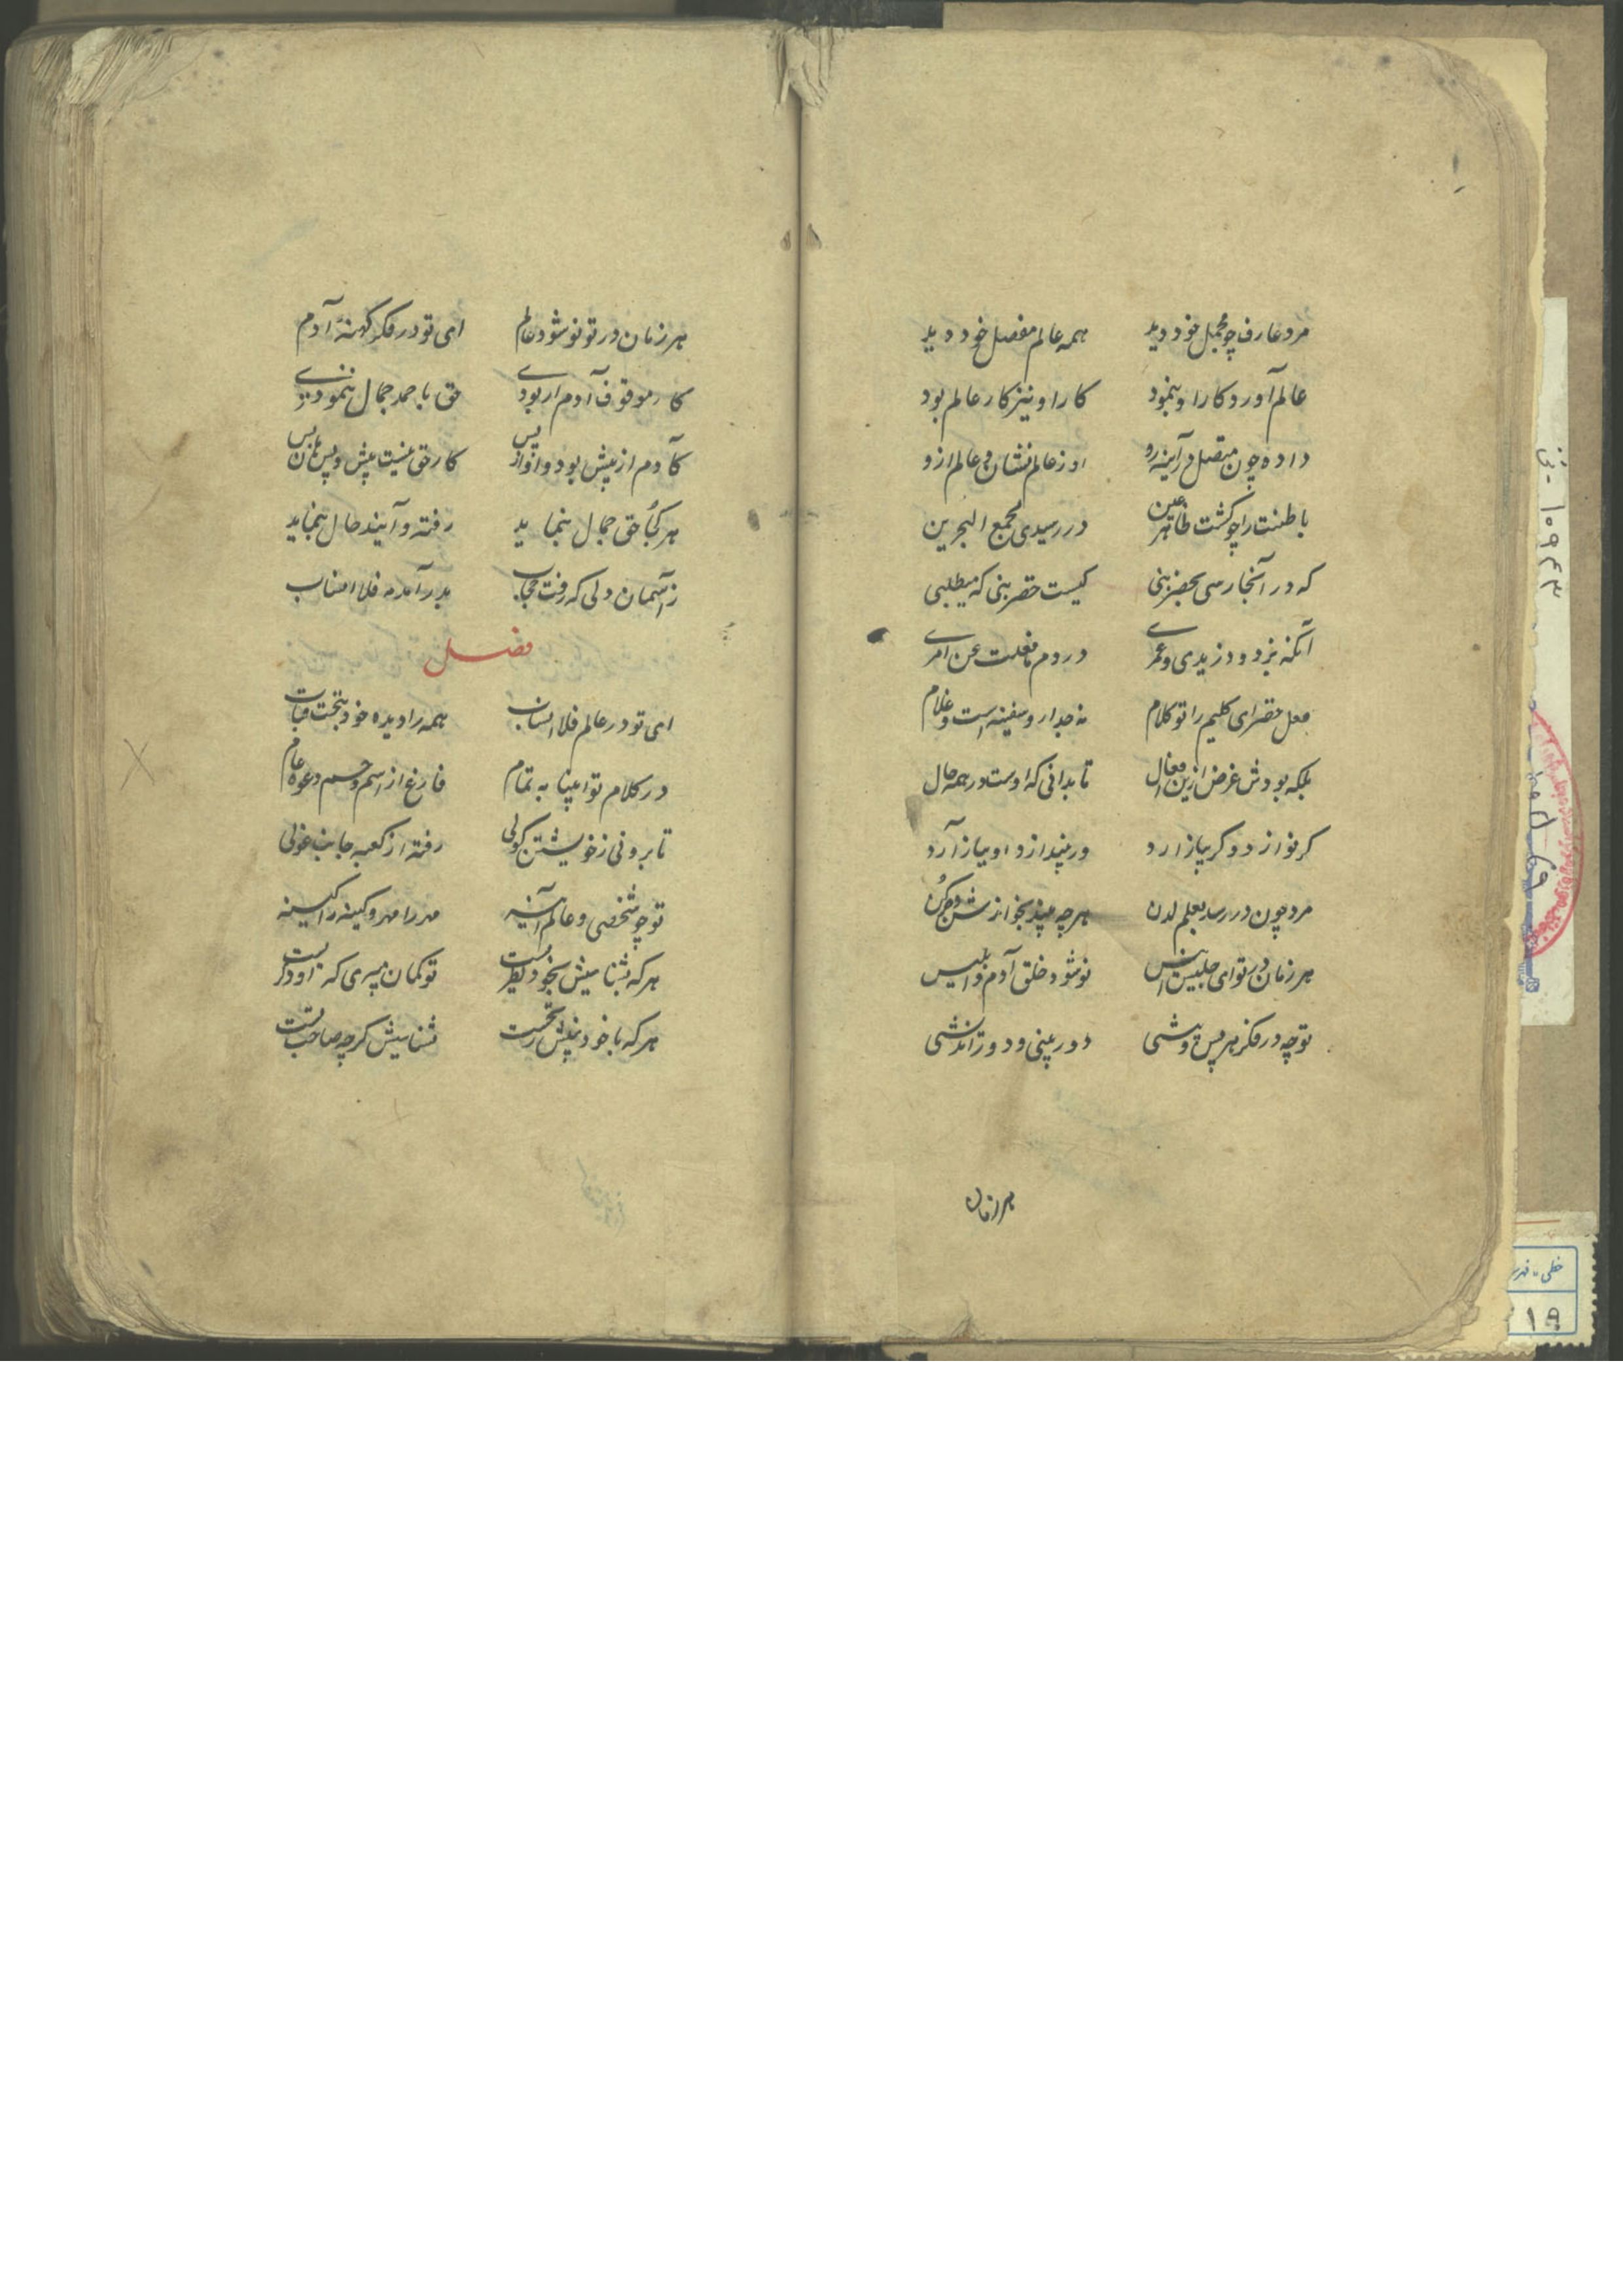 مرد عارف چو مجمل خود دید همه عالم مفصل خود دید
عالم آورد و کار او بنمود کار او نیز کار عالم بود
داده چون متصل در آینه رو او ز عالم نشان و عالم ازو
باطنت را چو گشت ظاهر عین در رسیدی بمجمع البحرین
که در آنجا رسی بخضر نبی کیست خضر نبی که میطلبی
آنکه نزد و دزیدی و عمری در دوم ما فعلت عن امری
فعل خضر ای کلیم را تو کلام نه جدار و سفینه است و غلام
بلکه بودش غرض ازین افعال تا بدانی که اوست در همه حال
کر نوازد وکر بیازارد ور بیندازد او بیاز آرد
مرد چون در رسد بعلم لدن هر چه بیند بجز از
هر زمان در تو ای جلیس انیس نو شود خلق آدم و ابلیس
تو چه در فکر هر پس و پیشی دور بینی و دور اندیشی
هر زمان
هر زمان در تو نو شود عالم ای تو در فکر کهنهٔ آدم
کار موقوف آدم ار بودی حق باحمد جمال ننمودی
کآدم از پیش بود و او از پس کار حق نیست پیش و پس
هر کجا حق جمال بنماید رفته و آینده حال بنماید
ز آسمان دلی که رفت حجاب بدر آمد مه فلا انساب
فصل
ای تو در عالم فلا انساب همه را دیده خود بتحت قباب
در کلام تو انبیا به تمام فارغ از اسم و جسم و دعوهٔ عام
تا برونی ز خویشتن کولی رفته از کعبه جانب غولی
تو چو شخصی و عالم آینه مهر را مهر و کینه را کینه
هر که بشناسیش بخود نظریست تو کمان میبری که او دگریست
هر که با خود بپیش نخست نشناسیش کرچه صاحب تست
خطی - فهر
۱۹
۱۰۹۴۳